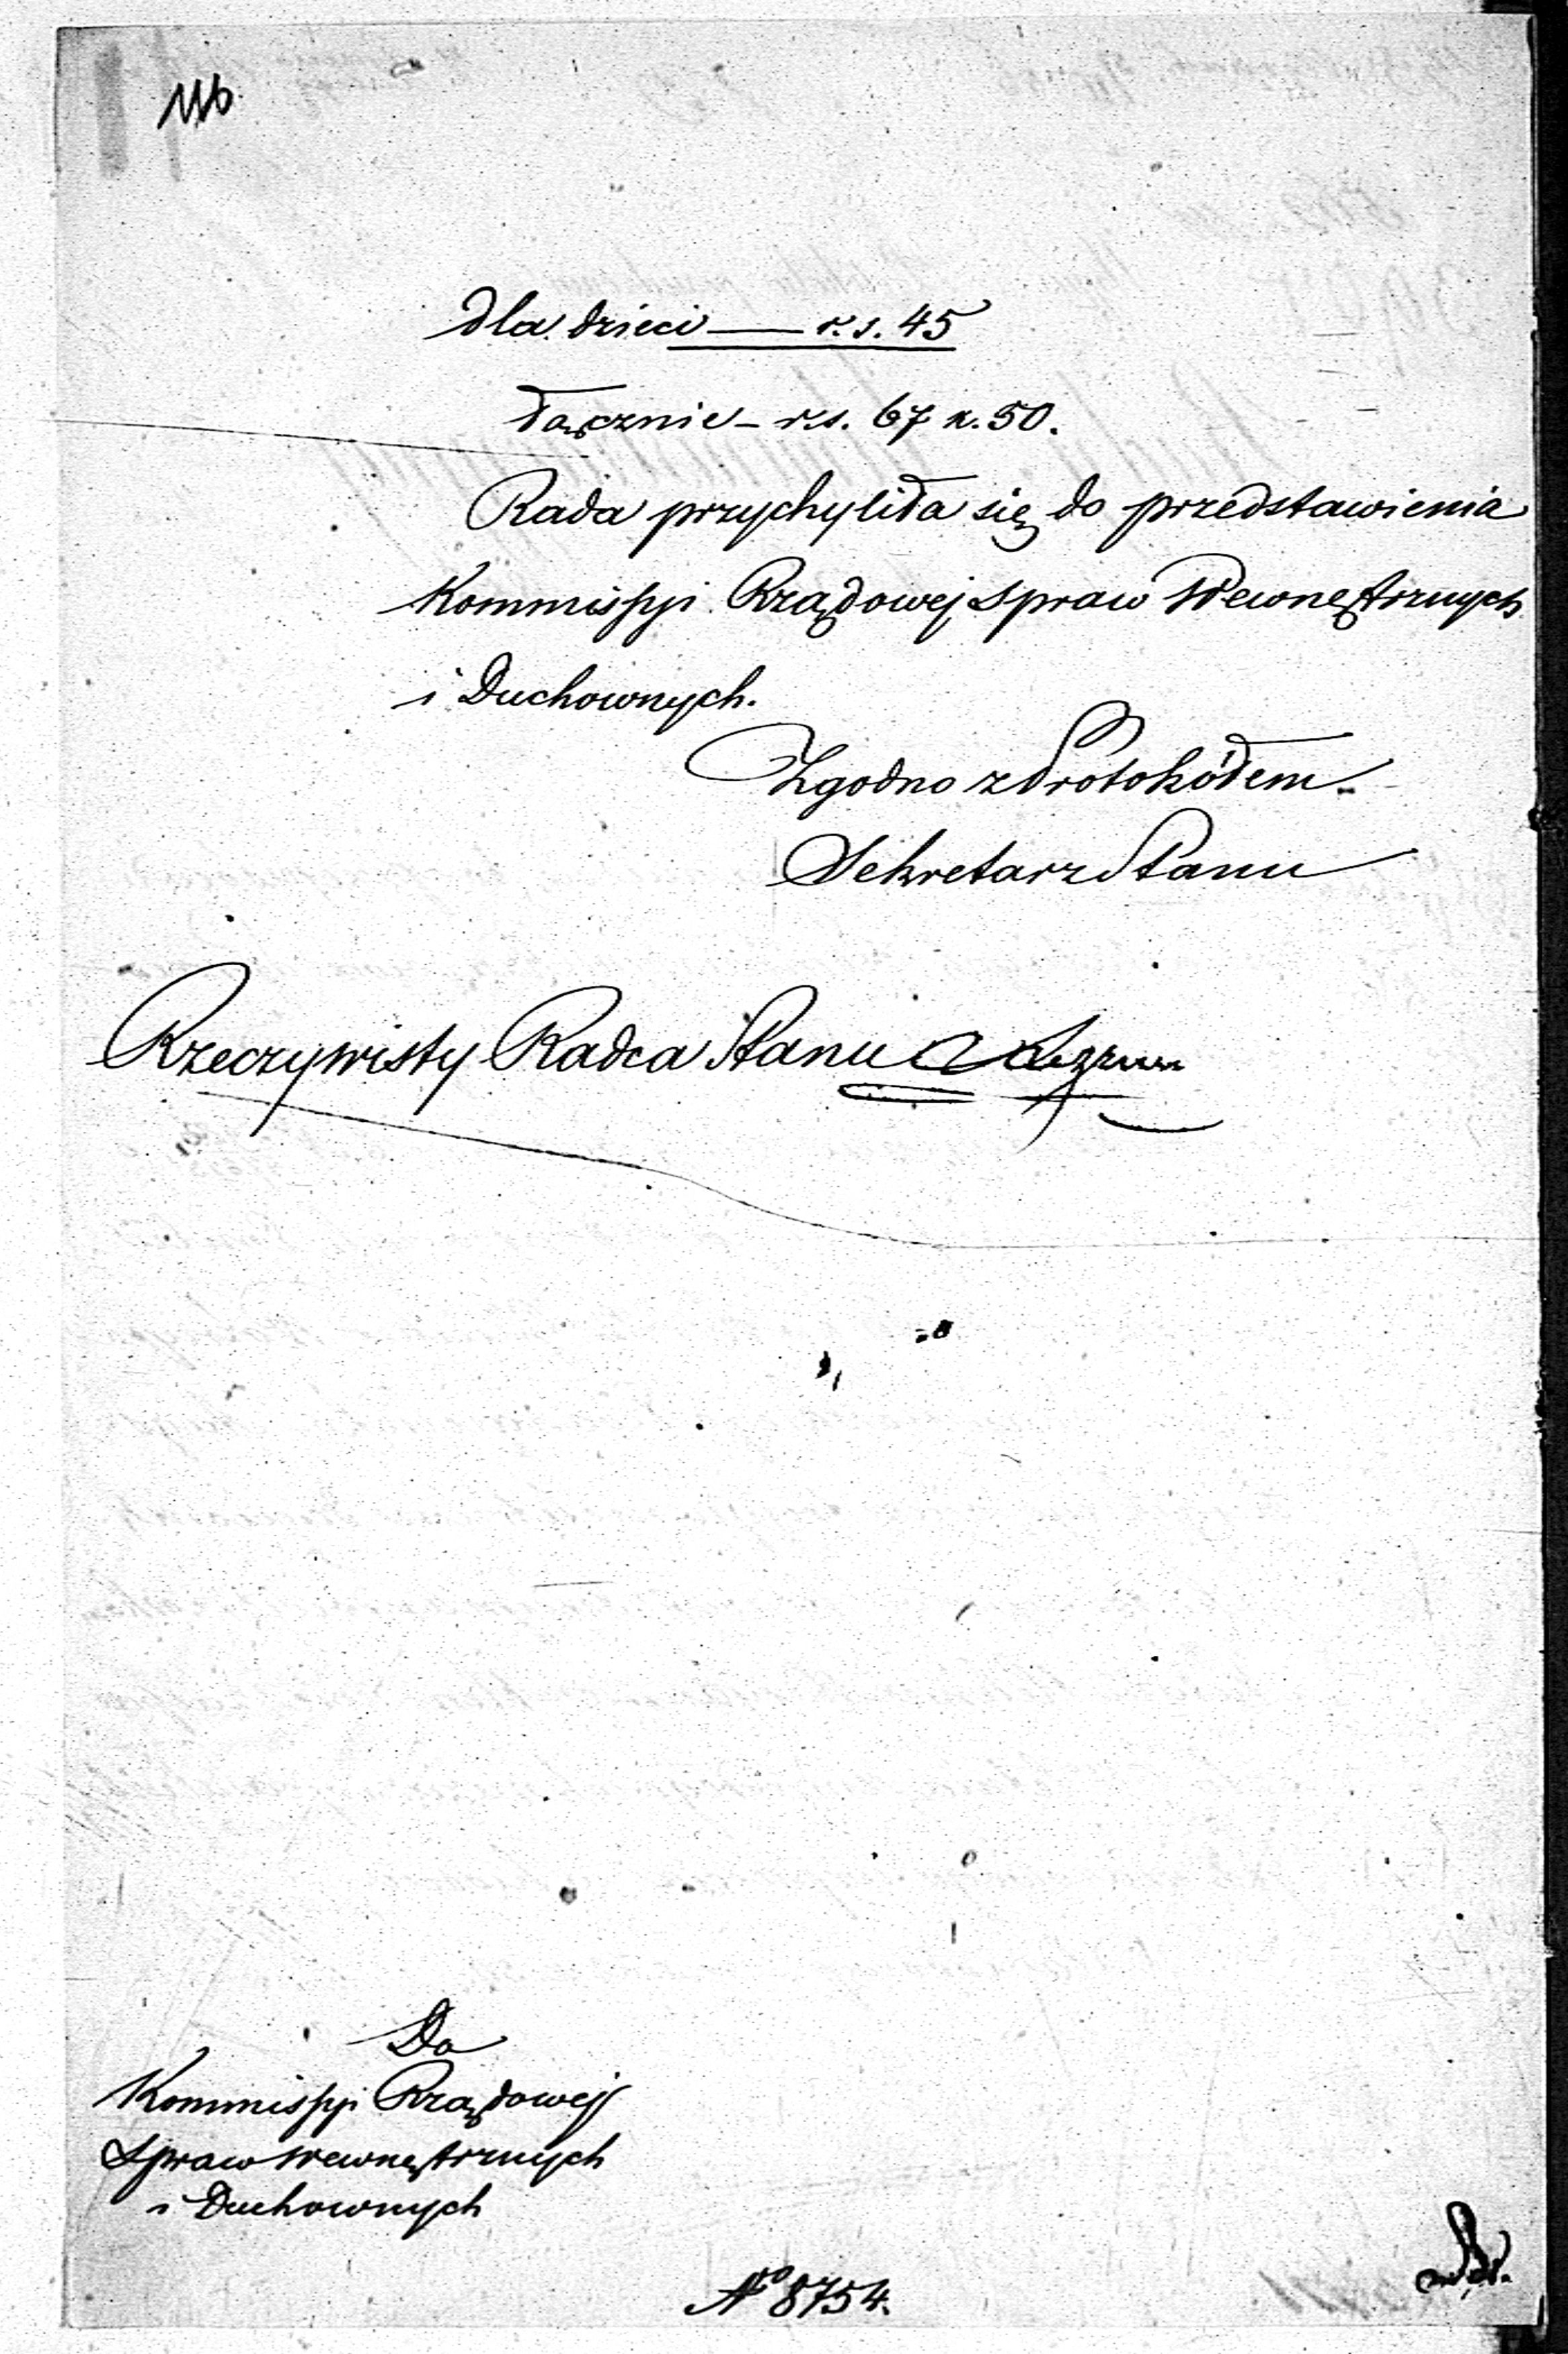 116
dla dzieci — r. s. 45
Łącznie — r.s. 67 k. 50.
Rada przychyliła się do przedstawienia
Kommissyi Rządowej Spraw Wewnętrznych
i Duchownych.
Zgodno z Protokółem.
Sekretarz Stanu
Rzeczywisty Radca Stanu
Do
Kommissyi Rządowej
Spraw Wewnętrznych
i Duchownych
No 8754.